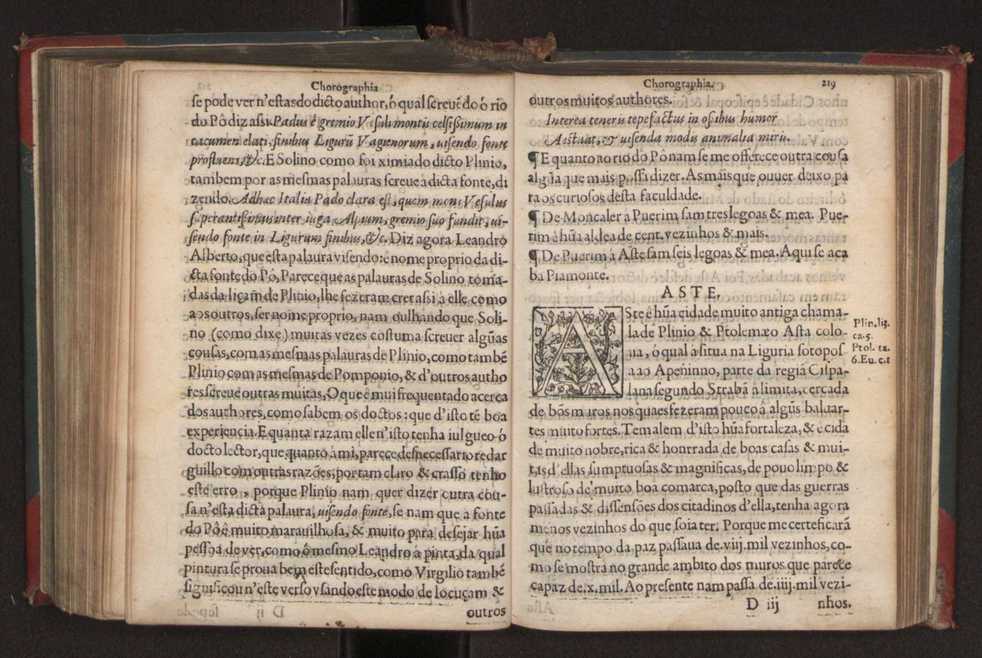 Chorographia
se pode ver n'estas do dicto author, ó qual screuẽ do ó rio
do Pô diz assi. Padus è gremio Vesuli montis celsissimum in
cacumen elati, finibus Ligurũ Vagienorum, uisendo fonte
profluens, &c. E Solino como foi ximia do dicto Plinio,
tambem por as mesmas palauras screue á dicta fonte, di
zendo. Adhæc Italia Pado clara est, quem mons Vesulus
superantissimus inter iuga Alpium, gremio suo fundit, ui-
sendo fonte in Ligurum finibus, &c. Diz agora Leandro
Alberto, que esta palaura visendo: é nome proprio da di-
cta fonte do Pô, Parece que as palauras de Solino toma-
das da liçam de Plinio, lhe fezeram crer assi á elle como
a os outros, ser nome proprio, nam oulhando que Soli-
no (como dixe) muitas vezes costuma screuer algũas
cousas, com as mesmas palauras de Plinio, como tambẽ
Plinio com as mesmas de Pomponio, & d'outros autho
res screue outras muitas, O que é mui frequentado acerca
dos authores, como sabem os doctos: que d'isto tẽ boa
experiencia. E quanta razam elle n'isto tenha iulgue o ó
docto lector, que quanto á mi, parece desnecessario redar
guillo com outras razões, por tam claro & crasso tenho
este erro, porque Plinio nam quer dizer outra cou-
sa n'esta dicta palaura, uisendo fonte, se nam que a fonte
do Pô é muito marauilhosa, & muito para desejar hũa
pessoa de ver, como ó mesmo Leandro á pinta, da qual
pintura se proua bem este sentido, como Virgilio tambẽ
significou n'este verso vsando este modo de locuçam &
outros
Chorographia. 219
outros muitos authores.
Interea teneris tepefactus in ossibus humor
Aestuat, & uisenda modis animalia miris.
¶ E quanto ao rio do Pô nam se me offerece outra cousa
algũa que mais possa dizer. As mais que ouuer deixo pa
ra os curiosos desta faculdade.
¶ De Moncaler a Puerim sam tres legoas & mea. Pue-
rim é hũa aldea de cent. vezinhos & mais.
¶ De Puerim á Aste sam seis legoas & mea. Aqui se aca
ba Piamonte.
ASTE.
ASte é hũa cidade muito antiga chama-
da de Plinio & Ptolemæo Asta colo-
nia, ó qual á situa na Liguria sotopos
ta ao Apeninno, parte da regiã Cispa-
dana segundo Strabã á limita, cercada
de bõs muros nos quaes fezeram pouco á algũs baluar-
tes muito fortes. Tem alem d'isto hũa fortaleza, & é cida
de muito nobre, rica & honrrada de boas casas & mui-
tas d'ellas sumptuosas & magnificas, de pouo limpo &
lustroso de muito boa comarca, posto que das guerras
passadas & dissensões dos citadinos d'ella, tenha agora
menos vezinhos do que soia ter. Porque me certeficarã
que no tempo da paz passaua de. viij. mil vezinhos, co-
mo se mostra no grande ambito dos muros que parece
capaz de. x. mil. Ao presente nam passa de. iiij. mil vezi-
D iij nhos.
Plin. li3.
ca. 5.
Ptol. ta.
6. Eu. c. 1